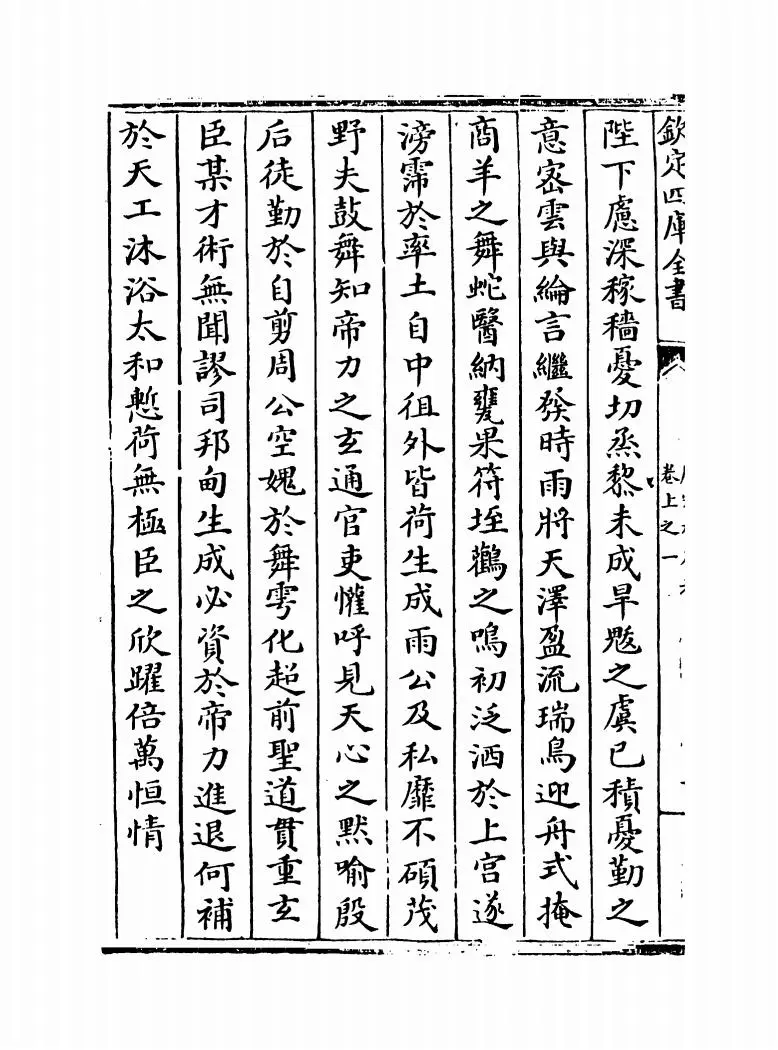 欽定四庫全書
卷上之一
陛下慮深稼穡憂切烝黎未成旱魃之虞已積憂勤之
意宻雲與綸言繼發時雨將天澤盈流瑞鳥迎舟式掩
商羊之舞蛇醫納甕果符垤鸛之鳴初泛洒於上宫遂
滂霈於率土自中徂外皆荷生成雨公及私靡不碩茂
野夫鼓舞知帝力之玄通官吏懽呼見天心之黙喻殷
后徒勤於自剪周公空媿於舞雩化超前聖道貫重玄
臣某才術無聞謬司邦甸生成必資於帝力進退何補
於天工沐浴太和慙荷無極臣之欣躍倍萬恒情